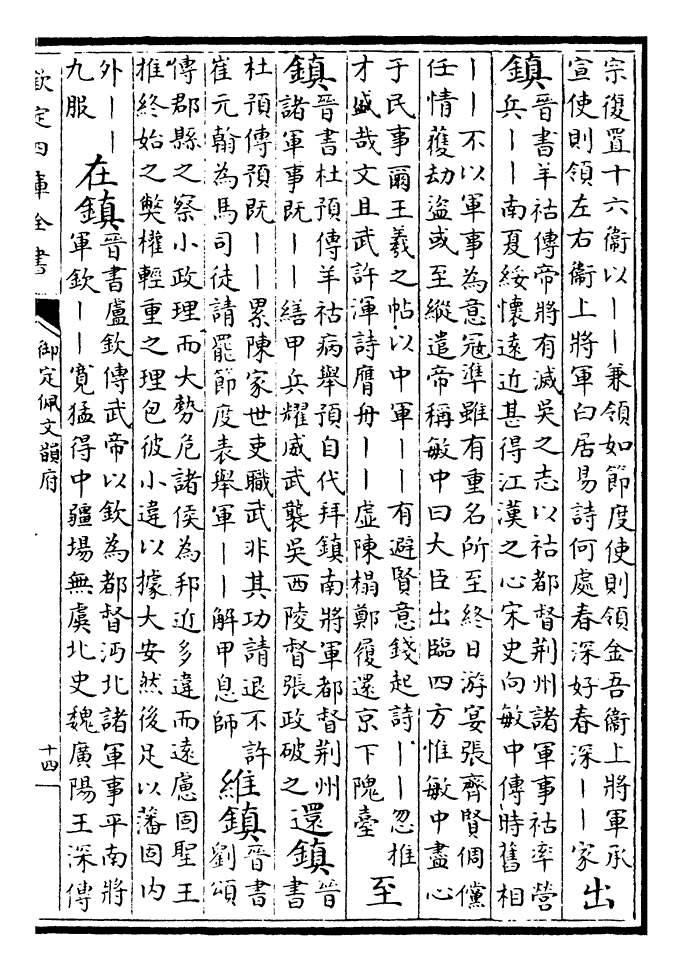 宗復置十六衞以丨丨兼領如節度使則領金吾衞上將軍承
宣使則領左右衞上將軍白居易詩何處春深好春深丨丨家
出鎮
晉書羊祜傳帝將有滅吳之志以祜都督荊州諸軍事祜率營
兵丨丨南夏綏懷遠近甚得江漢之心宋史向敏中傳時舊相
丨丨不以軍事為意寇準雖有重名所至終日游宴張齊賢倜儻
任情獲劫盜或至縱遣帝稱敏中曰大臣出臨四方惟敏中盡心
于民事爾王羲之帖以中軍丨丨有避賢意錢起詩丨丨忽推
才盛哉文且武許渾詩膺舟丨丨虛陳榻鄭履還京下隗臺
至鎮
晉書杜預傳羊祜病舉預自代拜鎮南將軍都督荊州
諸軍事既丨丨繕甲兵耀威武襲吳西陵督張政破之
還鎮
晉
書
杜預傳預既丨丨累陳家世吏職武非其功請退不許
崔元翰為馬司徒請罷節度表舉軍丨丨解甲息師
維鎮
晉書
劉頌
傳郡縣之察小政理而大勢危諸侯為邦近多違而遠慮固聖王
推終始之獘權輕重之理包彼小違以據大安然後足以藩固内
外丨丨
九服
在鎮
晉書盧欽傳武帝以欽為都督沔北諸軍事平南將
軍欽丨丨寛猛得中疆場無虞北史魏廣陽王深傳
欽定四庫全書
御定佩文韻府
十四